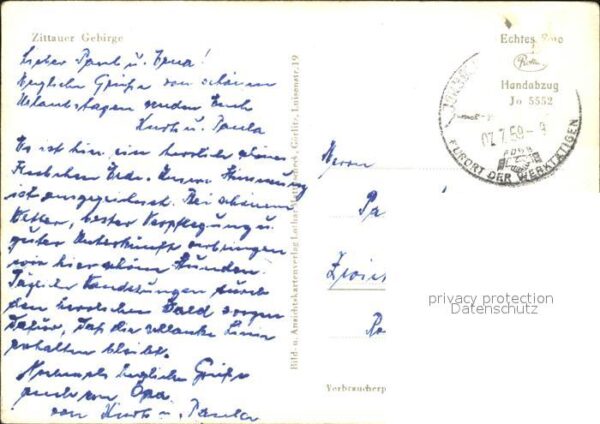 Zittauer Gebirge
Lieber Paul u. Erna!
Herzliche Grüße von schönen
Urlaubstagen senden Euch
Kurt u. Paula
Es ist hier ein herrlich schönes
Fleckchen Erde. Unsere Stimmung
ist ausgezeichnet. Bei schönem
Wetter, bester Verpflegung u.
guter Unterkunft verbringen
wir hier schöne Stunden.
Tägliche Wanderungen durch
den herrlichen Wald sorgen
dafür, daß die schlanke Linie
erhalten bleibt.
Nochmals herzliche Grüße
auch von Opa
von Kurt u. Paula
Bild- u. Ansichtskartenverlag Görlitz, Luisenstr. 19
Echtes
Handabzug
Jo 5552
02.7.59-9
KURORT DER WERKTÄTIGEN
Herrn
Pa
Verbraucherp
privacy protection
Datenschutz